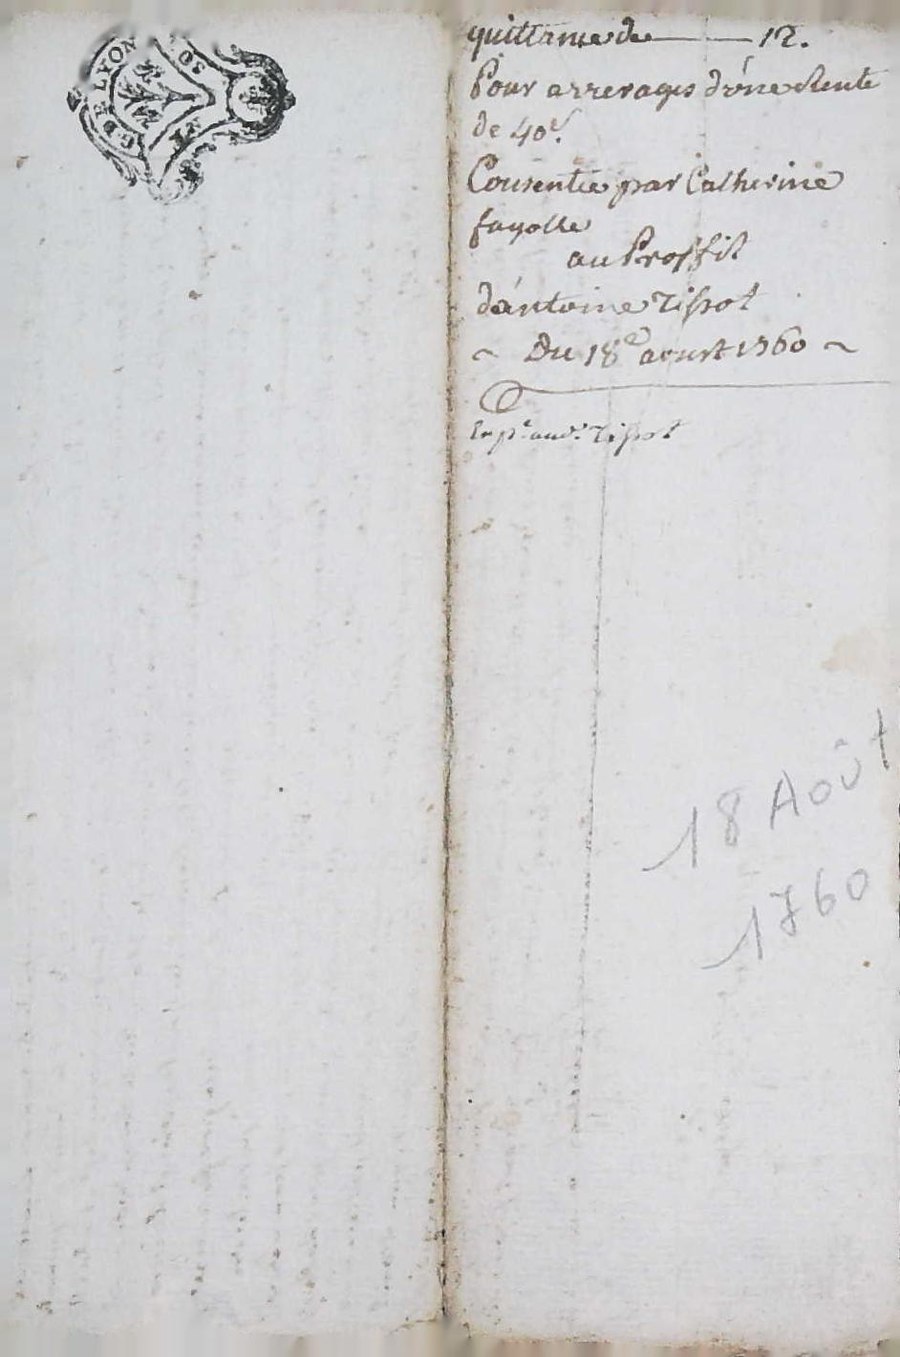 DE LYON
ET
30
quittance de ——— 12.
Pour arrerages d'une Rente
de 40s.
Consentie par Catherine
fayolle
au Proffit
d'antoine Tissot
~ Du 18e aoust 1760 ~
Tissot
18 Août
1760